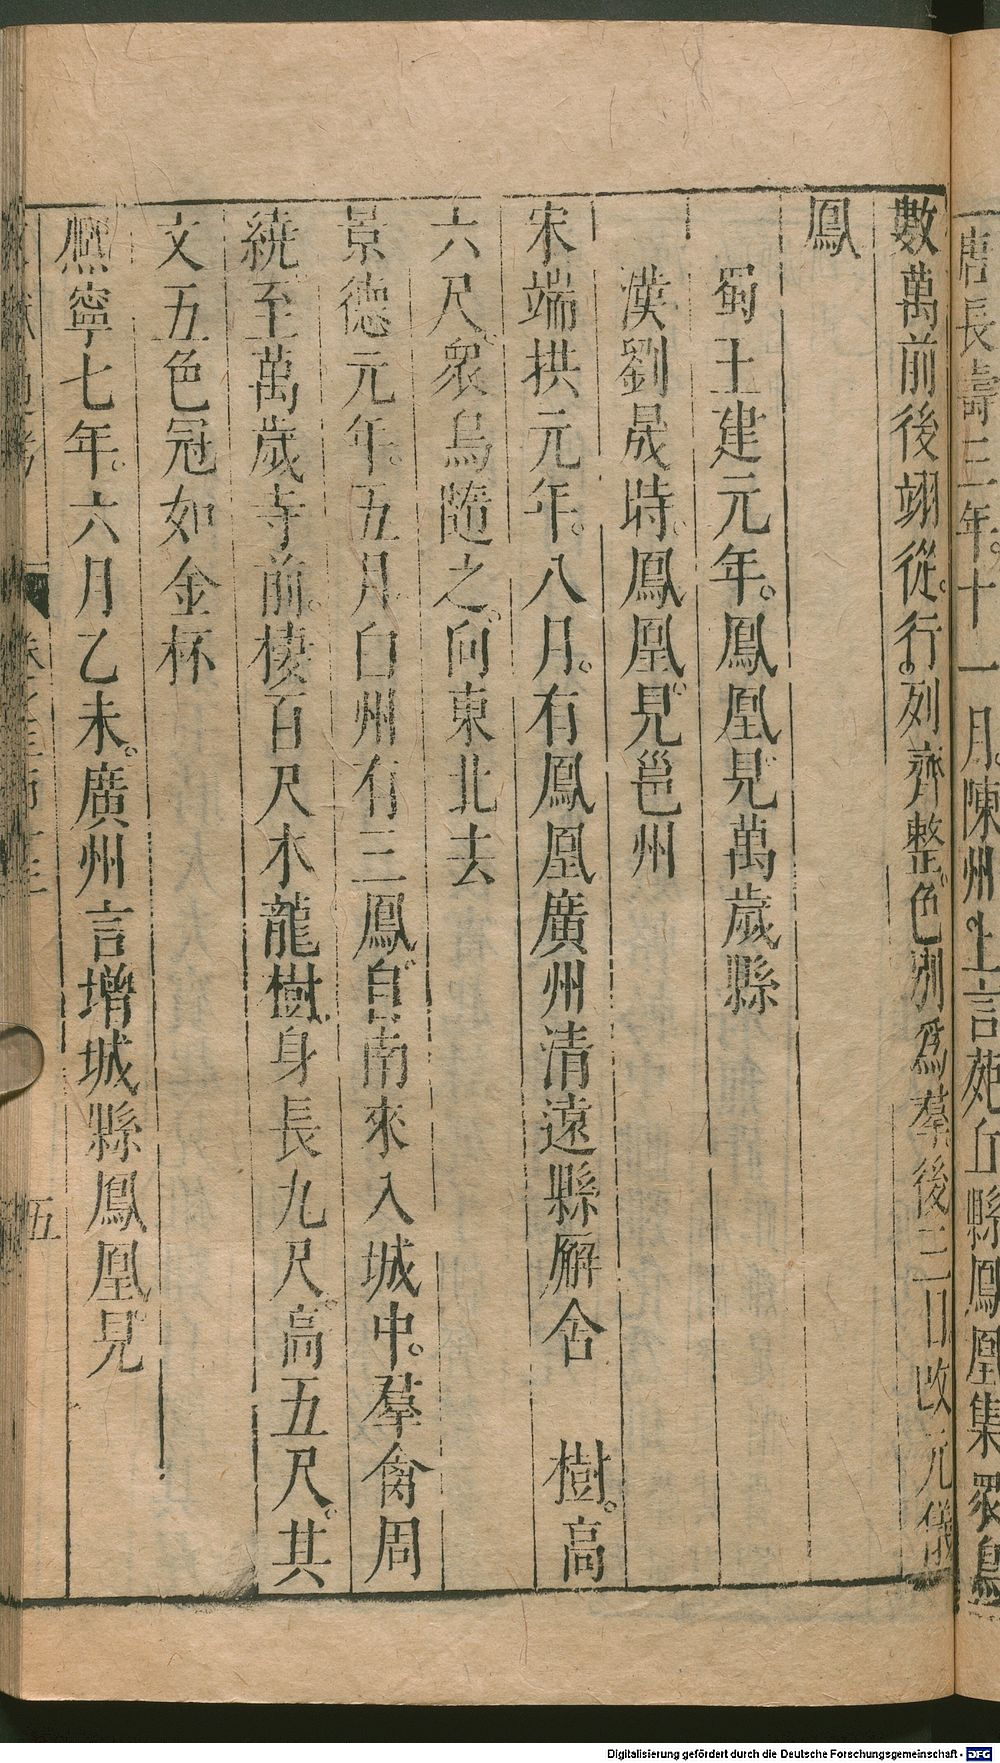 唐長壽三年。十一月。陳州上言苑丘縣鳳凰集。衆鳥
數萬前後翊從。行列齊整。色別爲羣後三日改元儀
鳳
蜀王建元年。鳳凰見萬歲縣
漢劉晟時。鳳凰見邕州
宋端拱元年。八月。有鳳凰廣州清遠縣廨舍 樹。高
六尺。衆鳥隨之。向東北去
景德元年。五月。白州有三鳳自南來入城中。羣禽周
繞至萬歲寺前。棲百尺木龍樹。身長九尺。高五尺。其
文五色冠如金杯
熙寧七年。六月乙未。廣州言增城縣鳳凰見
五
Digitalisierung gefördert durch die Deutsche Forschungsgemeinschaft - DFG